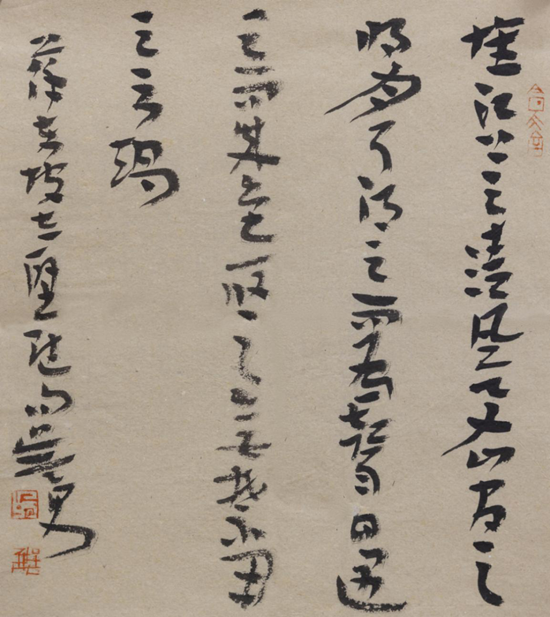 惟江上之清风与山间之
明月耳得之而为聲目遇
之而成色取之无禁用
之不竭
蘇東坡赤壁赋句